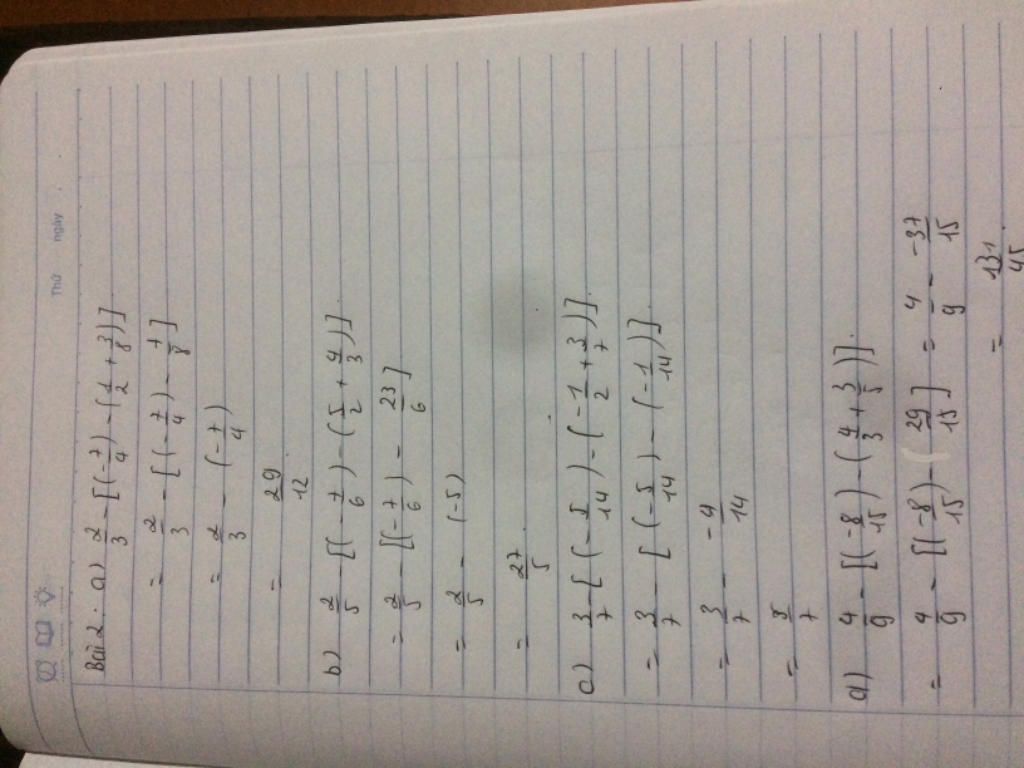 Thứ ngày
Bài 2: a) 2/3 - [(-7/4) - (1/2 + 3/8)]
= 2/3 - [(-7/4) - 7/8]
= 2/3 - (-7/4)
= 29/12
b) 2/5 - [(-7/6) - (5/2 + 4/3)]
= 2/5 - [(-7/6) - 23/6]
= 2/5 - (-5)
= 27/5
c) 3/7 - [(-5/14) - (-1/2 + 3/7)].
= 3/7 - [(-5/14) - (-1/14)].
= 3/7 - -4/14
= 5/7
d) 4/9 - [(-8/15) - (4/3 + 3/5)].
= 4/9 - [(-8/15) - (29/15] = 4/9 - -37/15
= 131/45